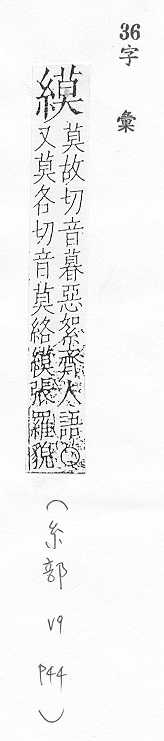 36
字彙
縸
莫故切音暮惡絮齊人語〇
又莫各切音莫絡縸張羅貌
(糸部 V9 P44)